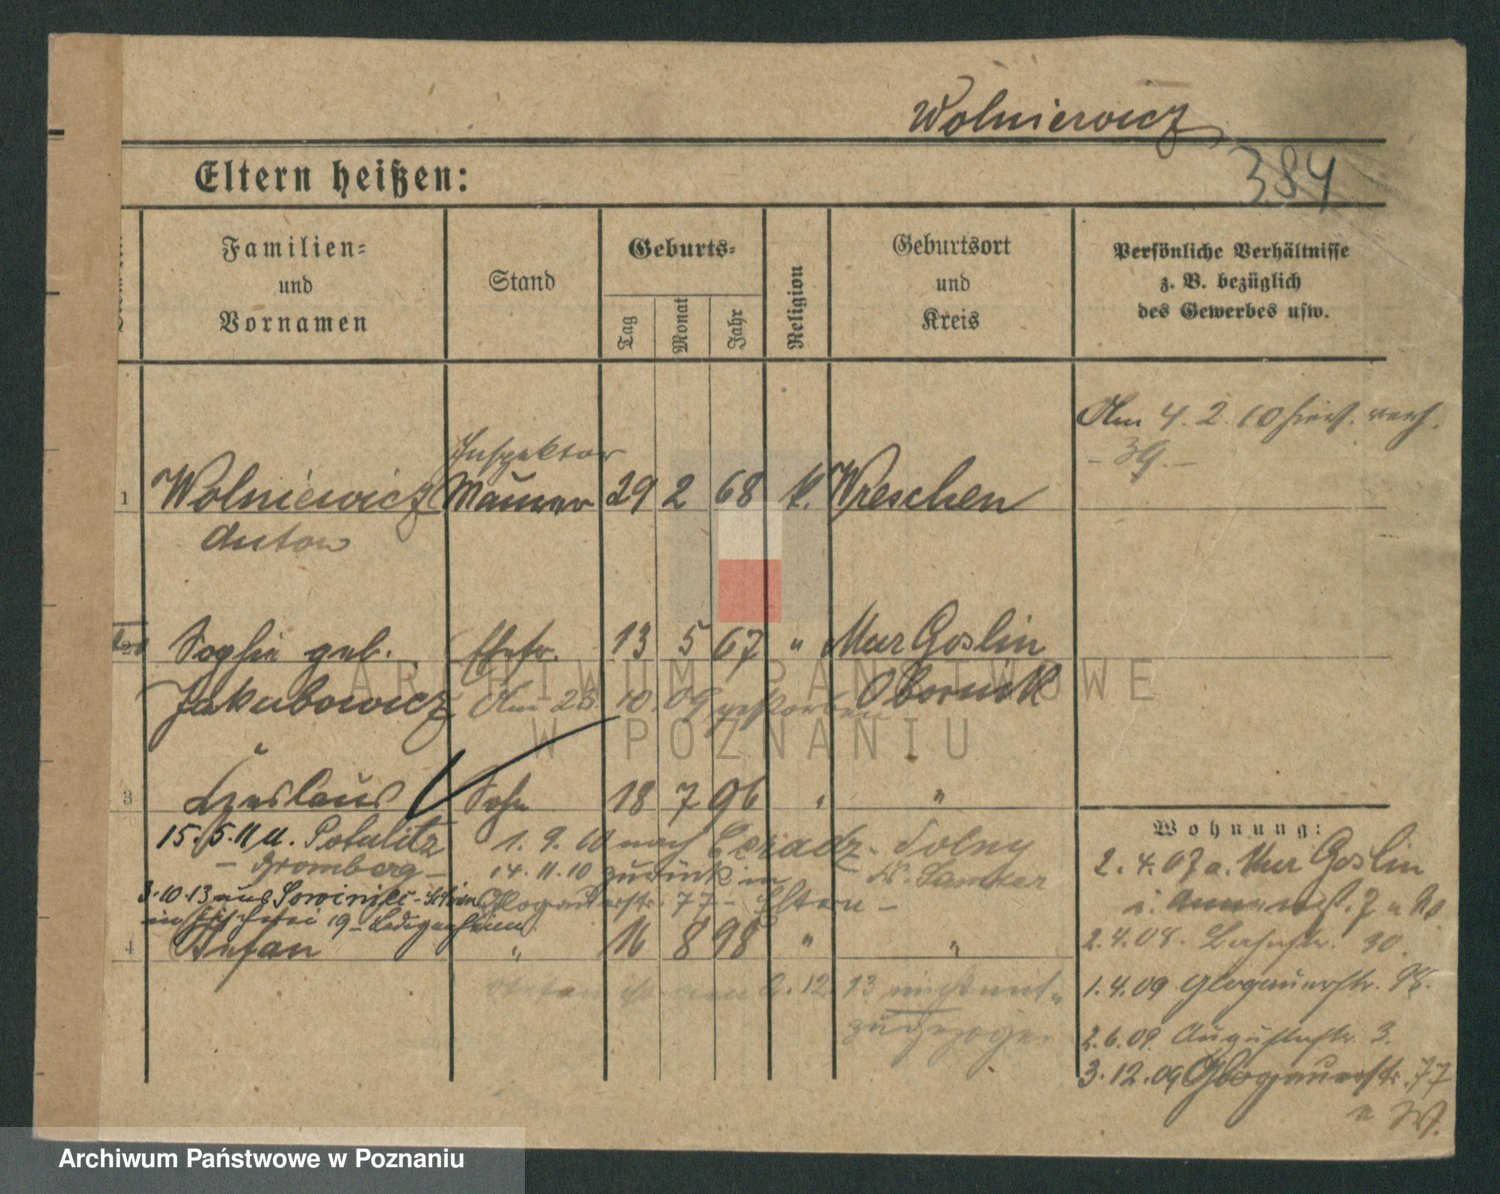 Wolniewicz
384
Eltern heißen:
Familien-
und
Vornamen
Stand
Geburts-
Tag
Monat
Jahr
Religion
Geburtsort
und
Kreis
Persönliche Verhältnisse
z. B. bezüglich
des Gewerbes usw.
Am 4. 2. 10
Inspektor
1 Wolniewicz Maurer 29 2 68 k. Wreschen
Anton
2 Sophie geb. Ehefr. 13 5 67 " Mur Goslin
Jakubowicz Am 28. 10. 09 gestorben Obornik
3 Czeslaus Sohn 18 7 96 " "
15. 5. 11 a. Potulitz 1. 9. 10 nach
- Bromberg - 14. 11. 10 zurück in Kr. Samter
3.10.13 aus Glogauerstr. 77 - Eltern -
4 Stefan " 16 8 98 " "
Stefan ist am 13 nicht mit
zugezogen
Wohnung:
2. 4. 07 a. Mur Goslin
2. 4. 08. 30.
1. 4. 09 Glogauerstr. 98.
2. 6. 09. Augustastr. 3.
3. 12. 09 Glogauerstr. 77
ARCHIWUM PAŃSTWOWE
W POZNANIU
Archiwum Państwowe w Poznaniu